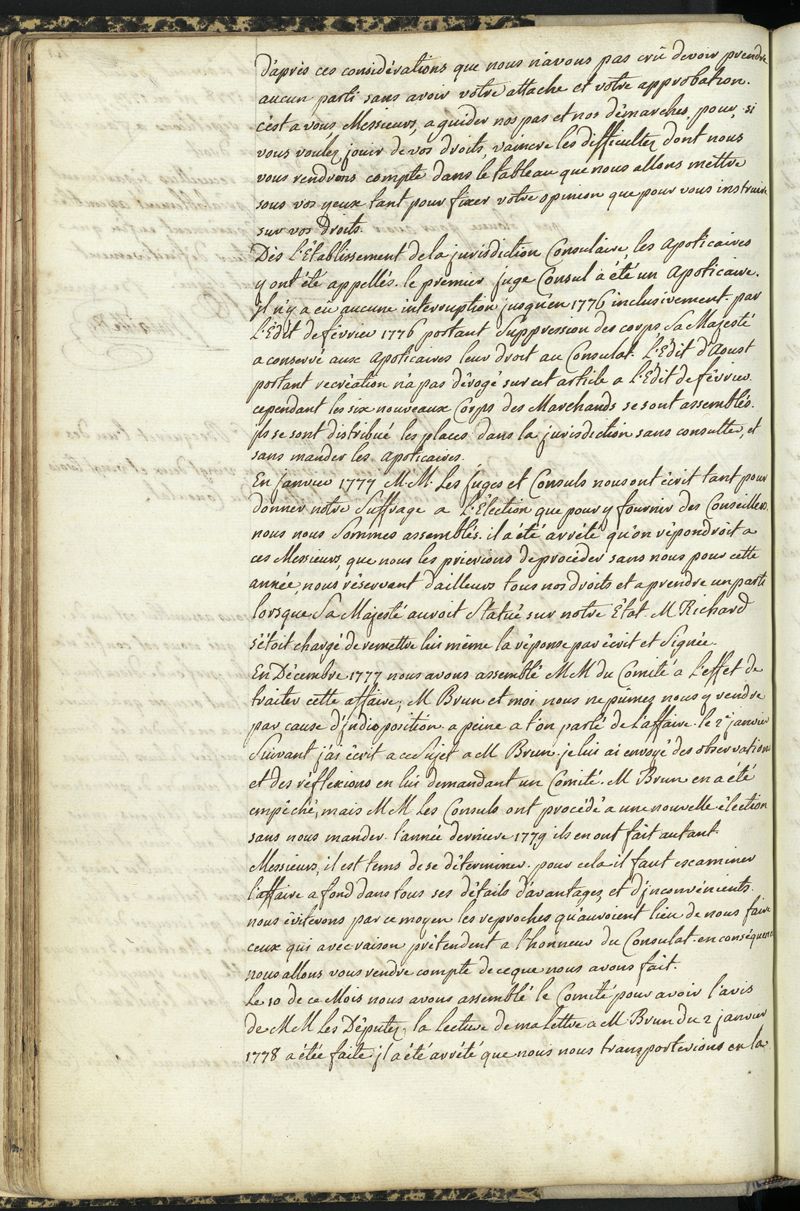 d'après ces considérations que nous n'avons pas crû devoir prendre
aucun parti sans avoir votre attache et votre approbation.
c'est a vous, Messieurs, a guider nos pas et nos démarches, pour, si
vous voulez jouir de vos droits, vaincre les difficultez dont nous
vous rendrons compte dans le tableau que nous allons mettre
sous vos yeux tant pour fixer votre opinion que pour vous instruire
sur vos Droits.
Dès L'Établissement de la jurisdiction Consulaire, les Apoticaires
y ont été appellés. le premier juge Consul à été un Apoticaire.
il n'y a eu aucune interruption jusqu'en 1776 inclusivement. par
L'Édit de février 1776 portant Suppression des corps Sa Majesté
a conservé aux Apoticaires leur droit au Consulat. L'Édit d'Aoust
portant recréation n'a pas dérogé sur cet article a L'Edit de février.
cependant les six nouveaux Corps des Marchands se sont assemblés.
ils se sont distribué les places dans la jurisdiction sans consulter, et
sans mander les Apoticaires.
En janvier 1777 M.M. Les juges et Consuls nous ont écrit tant pour
donner notre Suffrage a L'Élection que pour y fournir des Conseillers.
nous nous Sommes assemblés. il a été arrêté qu'on répondroit a
ces Messieurs, que nous les priervions de procéder sans nous pour cette
année, nous réservent d'ailleurs tous nos droits et a prendre un parti
lorsque Sa Majesté auroit Statué sur notre État. M Richard
s'étoit chargé de remettre lui même la réponse par écrit et Signée.
En Décembre 1777 nous avons assemblé MM du Comité a L'effet de
traiter cette affaire, M Brun et moi nous ne pûmes nous y rendre
par cause d'jndisposition. a peine a t'on parlé de L'affaire. le 2e janvier
Suivant j'ai écrit a ce Sujet a M Brun. je lui ai envoyé des observation
et des réflexions en lui demandant un Comité. M Brun en a été
empêché, mais MM Les Consuls ont procédé a une nouvelle élection
sans nous mander. l'année derniere 1779 ils en ont fait autant.
Messieurs, il est tems de se déterminer. pour cela il faut examiner
l'affaire a fond dans tous ses détails d'avantages et d'jnconvénients.
nous éviterons par ce moyen les reproches qu'auroient lieu de nous faire
ceux qui avec raison prétendent a l'honneur du Consulat. en conséquence
nous allons vous rendre compte de ce que nous avons fait.
Le 10 de ce Mois nous avons assemblé le Comité pour avoir l'avis
de MM Les Députez, la Lecture de ma Lettre a M Brun du 2 janvier
1778 a étée faite jl a été arrêté que nous nous transporterions en la